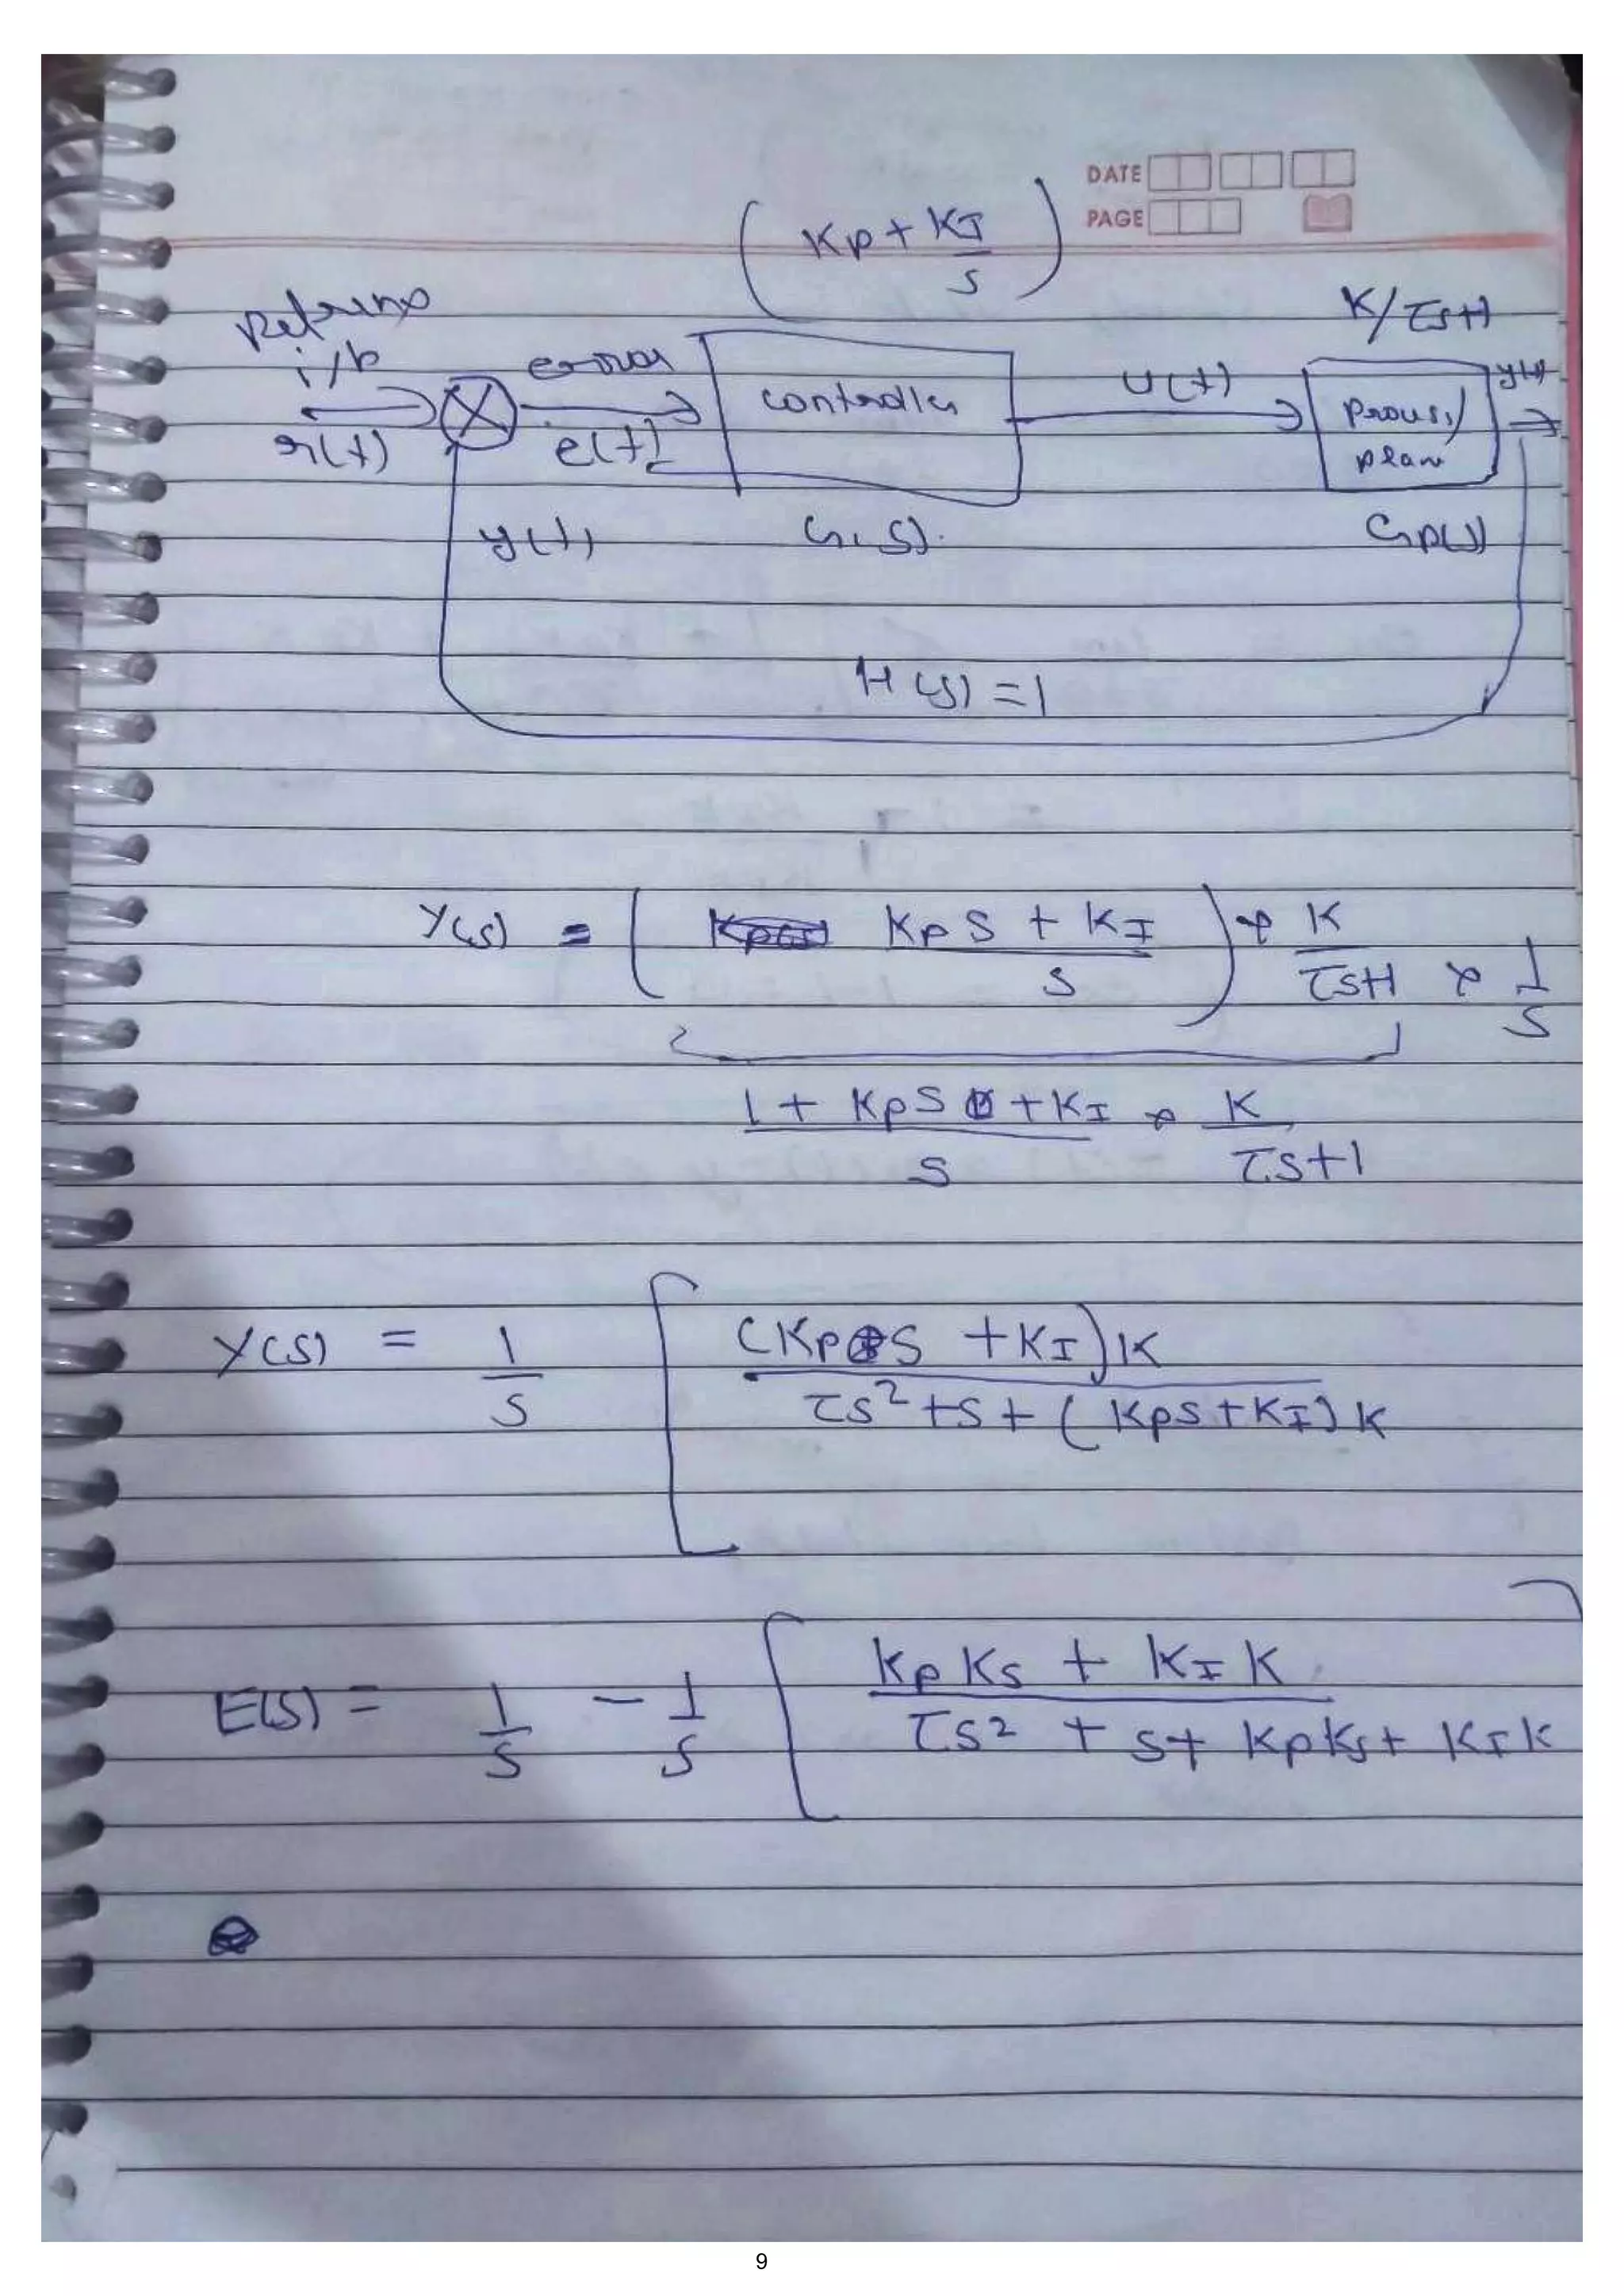 DATE
PAGE
(Kp + KI/s)
K/τs+1
i/p
error
r(t)
e(t)
controller
U(t)
y(t)
y(t)
G(S).
Gp(s)
H(s) = 1
Y(s) = ( KpS + KI / S ) * K / τs+1 * 1/S
1 + KpS + KI / S * K / τs+1
Y(s) = 1/S [ (KpS + KI)K / τs² + s + (KpS + KI)K
E(s) = 1/S - 1/S [ KpKs + KIK / τs² + s + KpKs + KIK ]
9